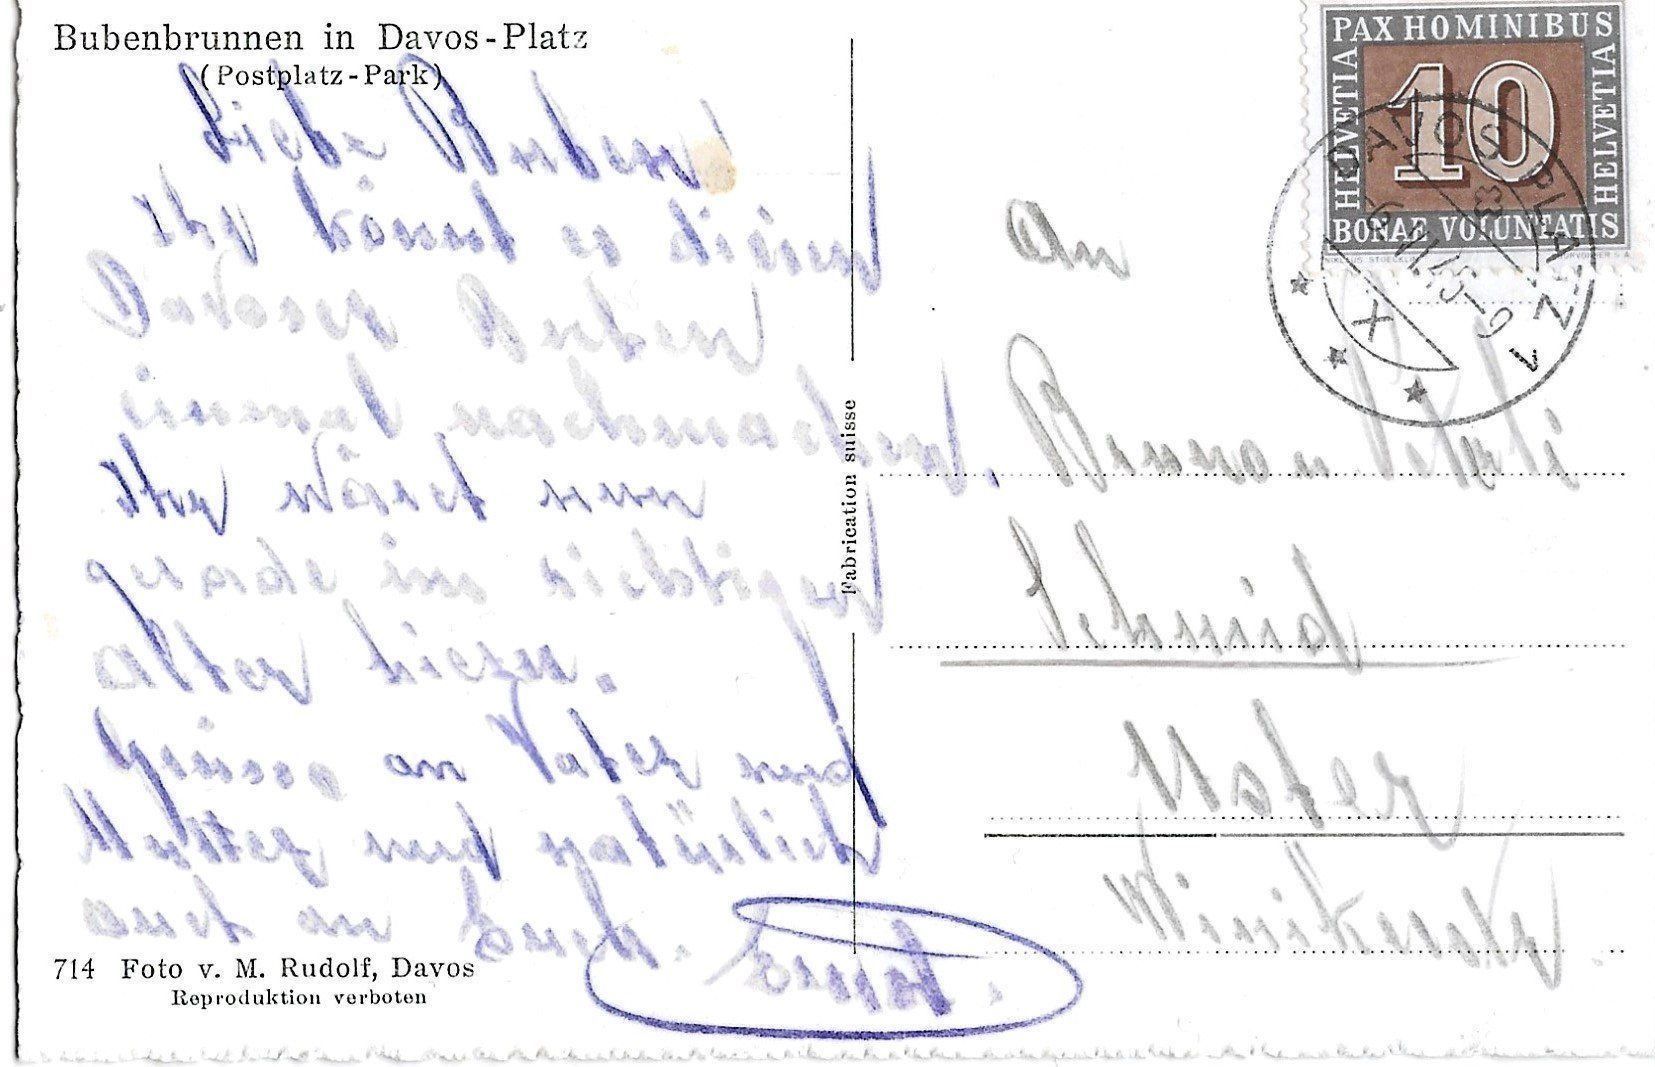 Bubenbrunnen in Davos-Platz
(Postplatz-Park)
Liebe Buben
Ihr könnt es diesen
Davoser Buben
einmal nachmachen,
Ihr wäret nun
gerade im richtigen
alter hiezu.
Grüsse an Vater und
Mutter und natürlich
auch an Euch. Ernst.
714 Foto v. M. Rudolf, Davos
Reproduktion verboten
Fabrication suisse
PAX HOMINIBUS
HELVETIA
10
HELVETIA
BONAE VOLUNTATIS
DAVOS PLATZ 1
An
Bruno u.
Schmid
Uster